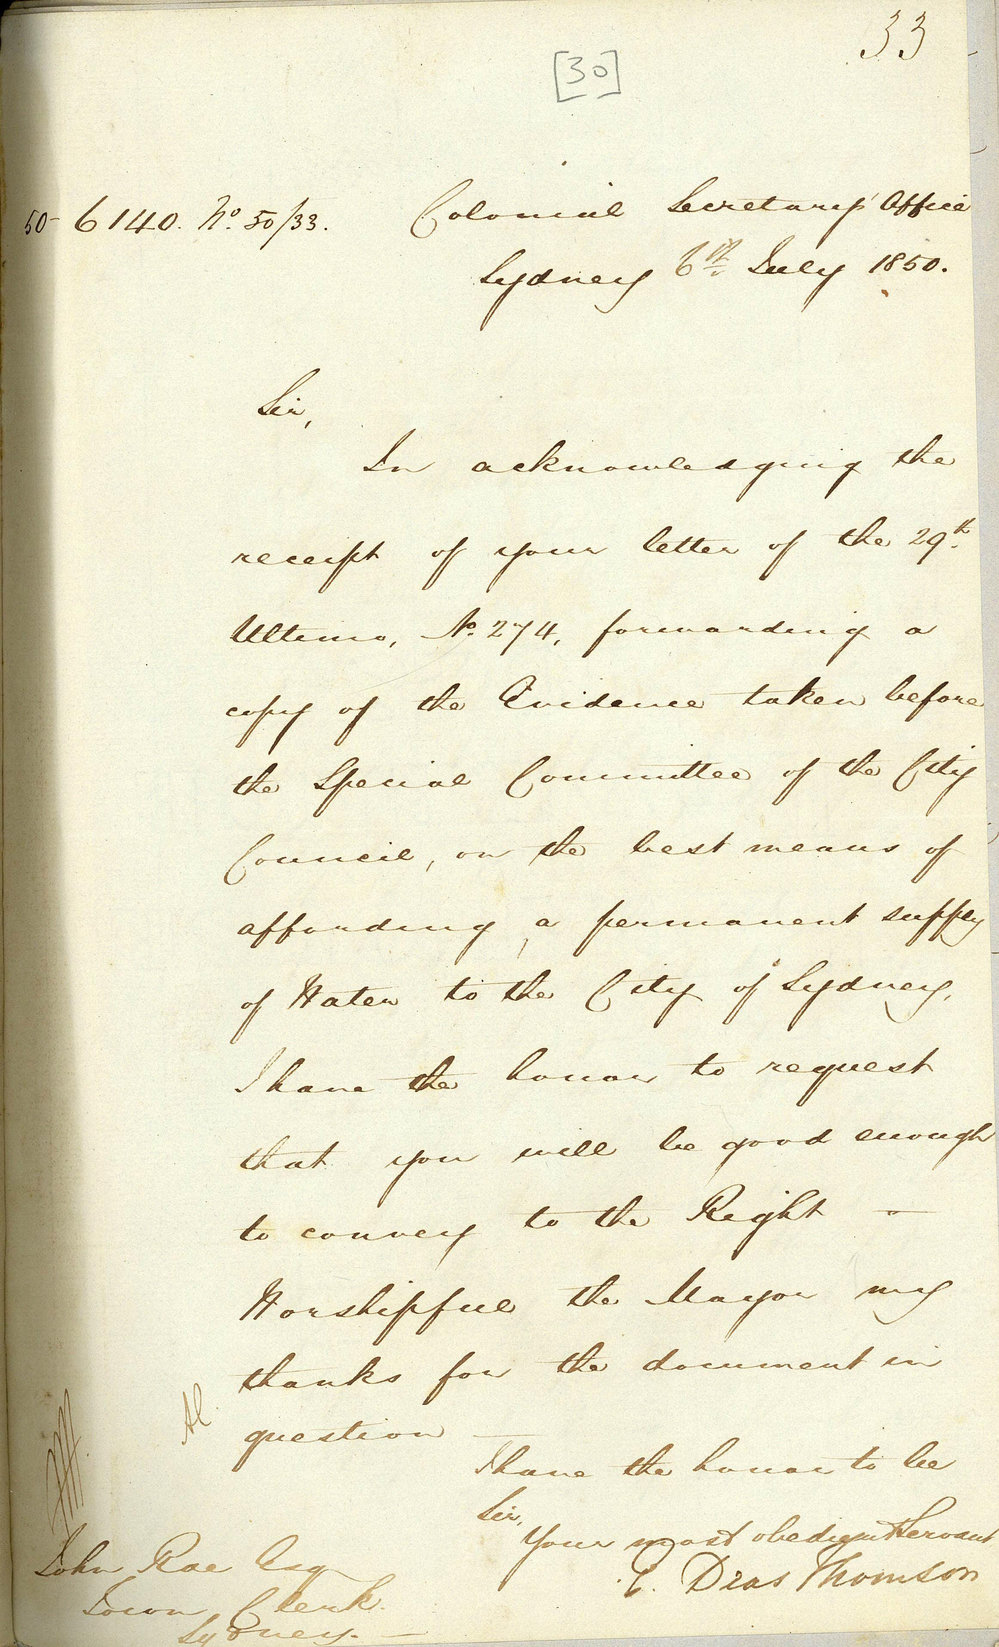 33
[30]
50-6140. No. 50/33.
Colonial Secretary's Office
Sydney 6th July 1850.
Sir,
In acknowledging the
receipt of your letter of the 29th
Ultimo, No. 274, forwarding a
copy of the Evidence taken before
the Special Committee of the City
Council, on the best means of
affording, a permanent supply
of Water to the City of Sydney,
I have the honor to request
that you will be good enough
to convey to the Right -
Worshipful the Mayor my
thanks for the document in
question -
I have the honor to be
Sir,
Your most obedient Servant
E. Deas Thomson
John Rae Esq
Town Clerk.
Sydney. -